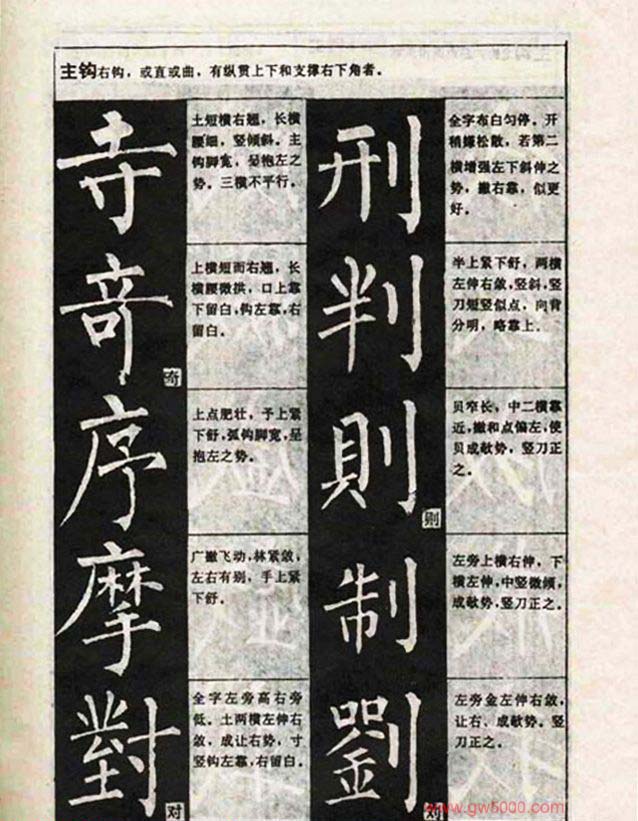 主钩右钩，或直或曲，有纵贯上下和支撑右下角者。
寺
土短横右翘，长横
腰细，竖倾斜。主
钩脚宽，呈抱左之
势。三横不平行。
竒
奇
上横短而右翘，长
横腰微拱，口上靠
下留白，钩左靠，右
留白。
序
上点肥壮，予上紧
下舒，弧钩脚宽，呈
抱左之势。
摩
广撇飞动，林紧敛，
左右有别，手上紧
下舒。
對
对
全字左旁高右旁
低。土两横左伸右
敛，成让右势，寸
竖钩左靠，右留白。
刑
全字布白匀停。开
稍嫌松散，若第二
横增强左下斜伸之
势，撇右靠，似更
好。
判
半上紧下舒，两横
左伸右敛，竖斜，竖
刀短竖似点，向背
分明，略靠上。
則
则
贝窄长，中二横靠
近，撇和点偏左，使
贝成欹势，竖刀正
之。
制
左旁上横右伸，下
横左伸，中竖微倾，
成欹势，竖刀正之。
劉
左旁金左伸右敛，
让右、成欹势。竖
刀正之。
www.gw5000.com